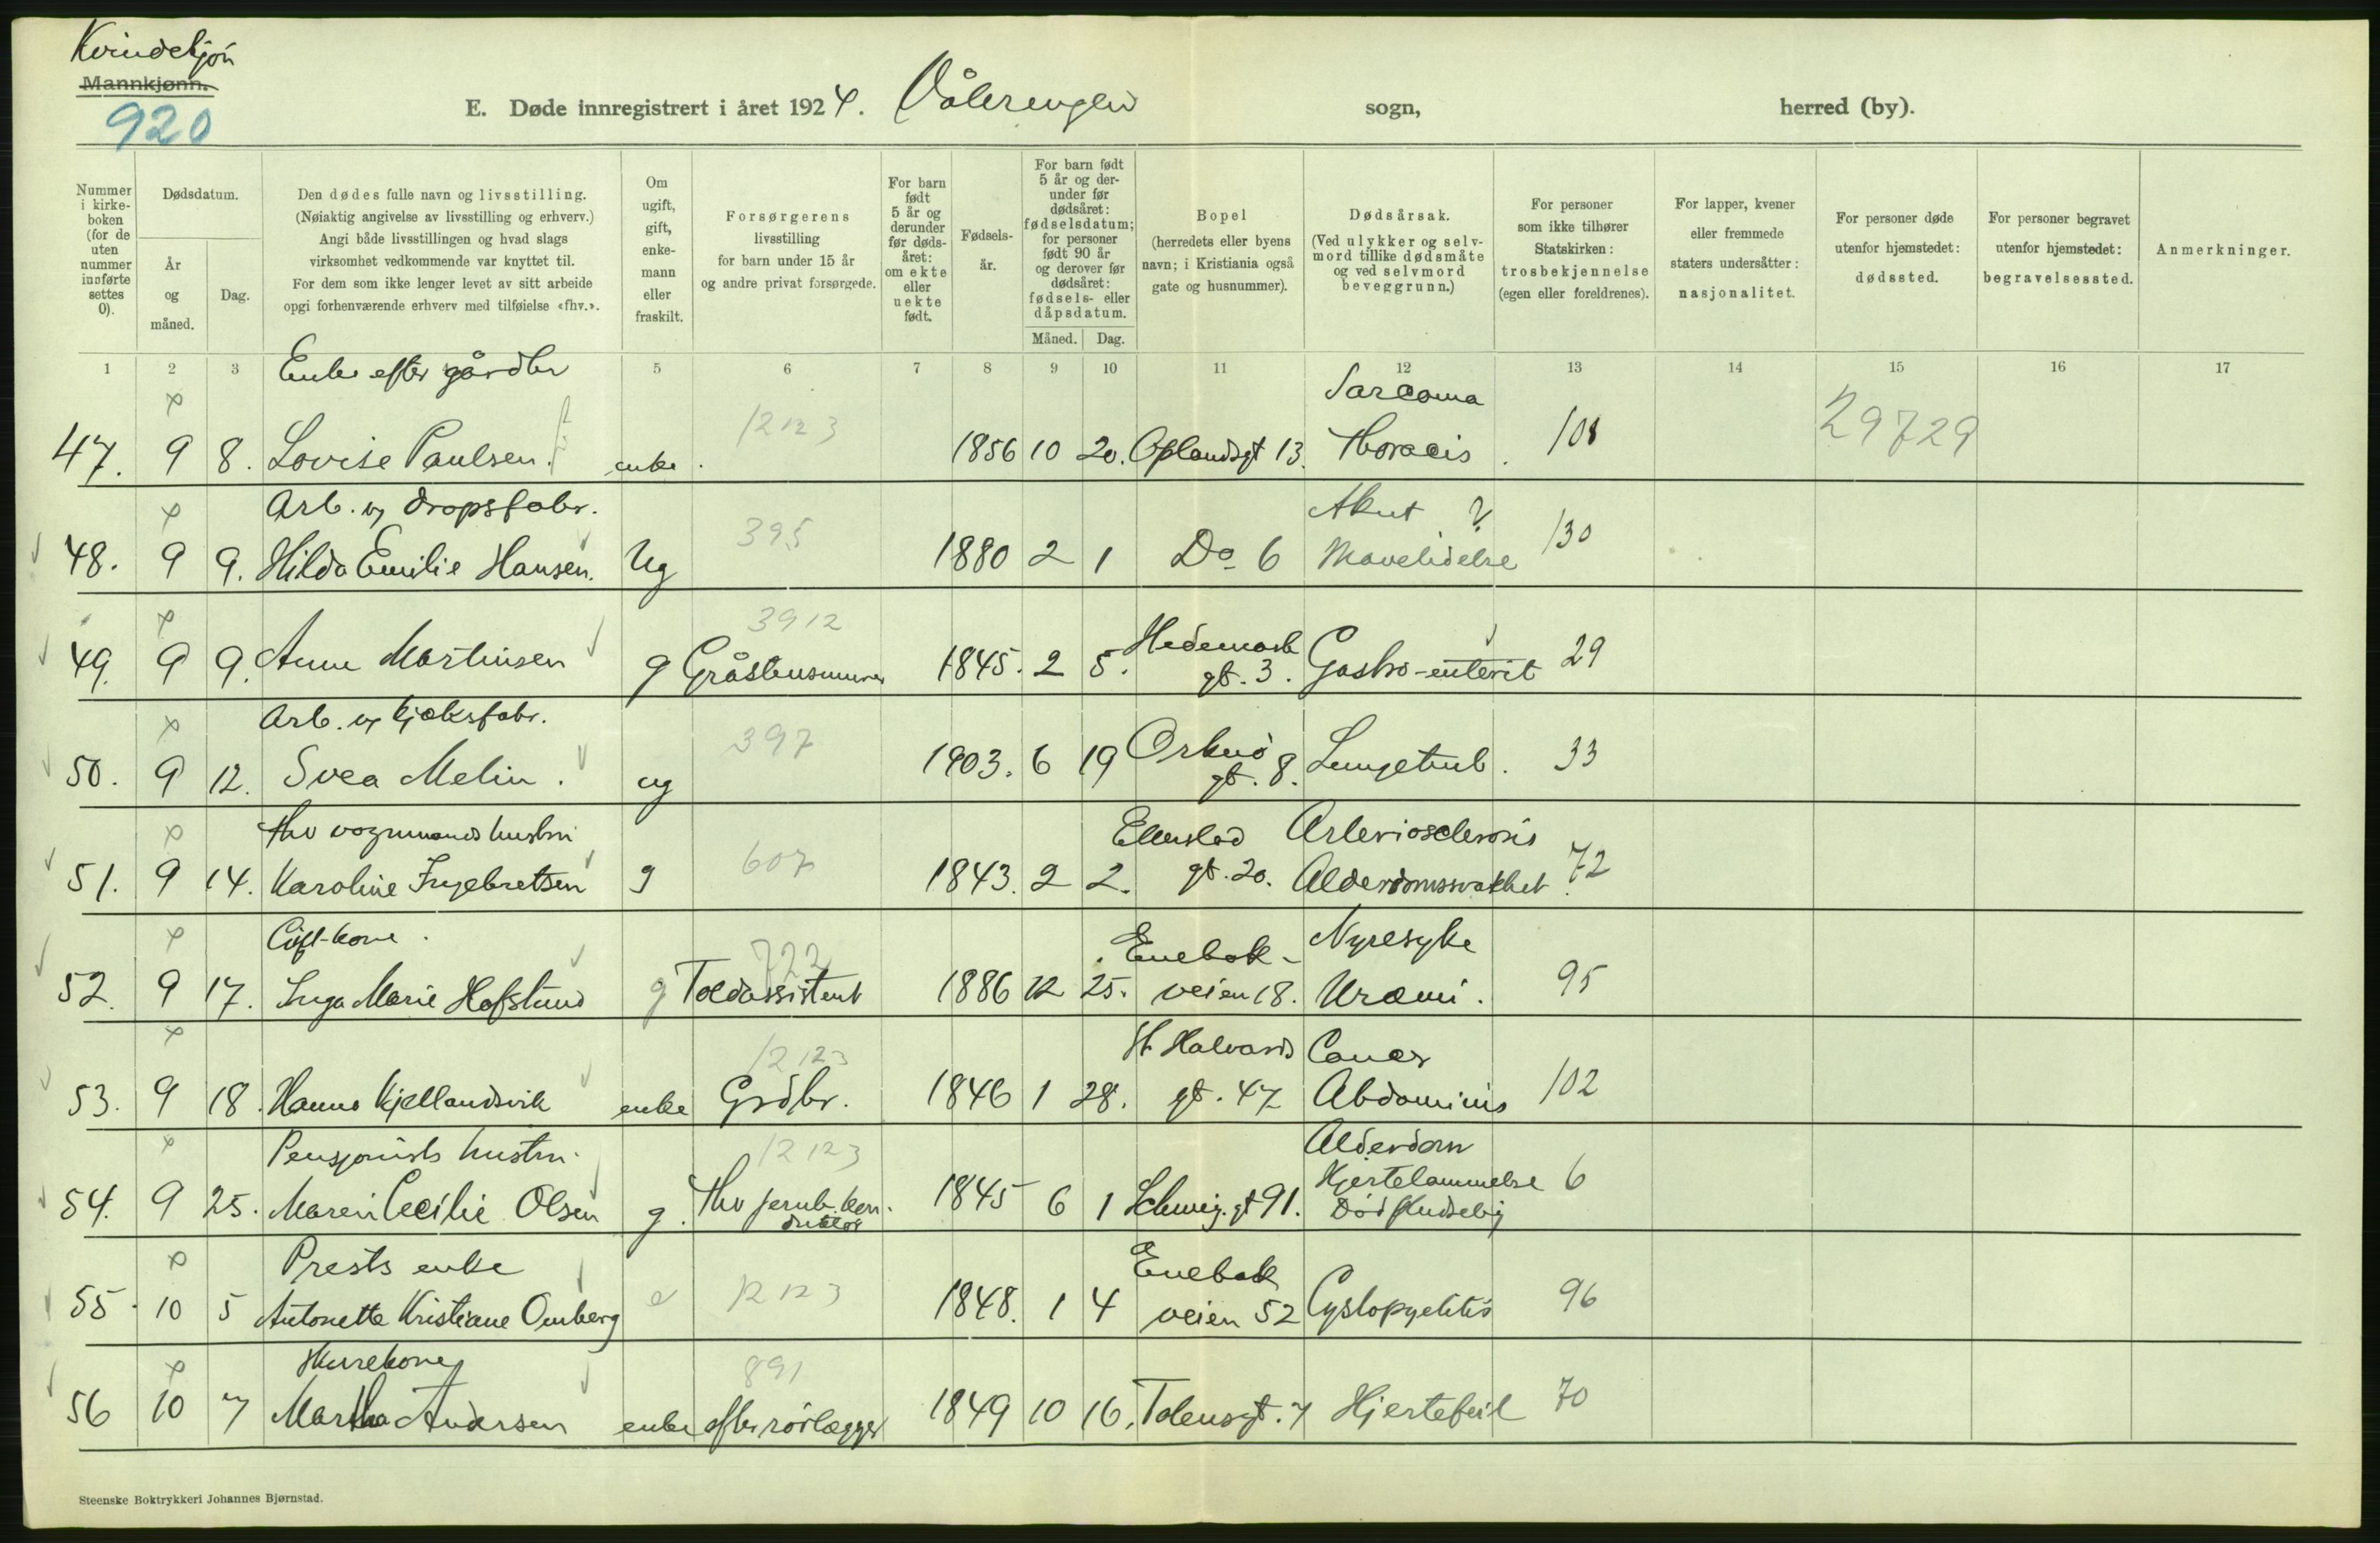 Kvindekjøn
Mannkjønn.
920
E. Døde innregistrert i året 1924. Vålerengen sogn, herred (by).
Nummer i kirke-boken (for de uten nummer innførte settes 0).
Dødsdatum.
År og måned.
Dag.
Den dødes fulle navn og livsstilling.
(Nøiaktig angivelse av livsstilling og erhverv.)
Angi både livsstillingen og hvad slags
virksomhet vedkommende var knyttet til.
For dem som ikke lenger levet av sitt arbeide
opgi forhenværende erhverv med tilføielse «fhv.».
Om ugift, gift, enke-mann eller fraskilt.
Forsørgerens livsstilling
for barn under 15 år
og andre privat forsørgede.
For barn født 5 år og derunder før døds-året: om ekte eller uekte født.
Fødsels-år.
For barn født 5 år og der-under før dødsåret: fødselsdatum; for personer født 90 år og derover før dødsåret: fødsels- eller dåpsdatum.
Måned. Dag.
Bopel
(herredets eller byens
navn; i Kristiania også
gate og husnummer).
Dødsårsak.
(Ved ulykker og selv-
mord tillike dødsmåte
og ved selvmord
beveggrunn.)
For personer
som ikke tilhører
Statskirken:
trosbekjennelse
(egen eller foreldrenes).
For lapper, kvener
eller fremmede
staters undersåtter:
nasjonalitet.
For personer døde
utenfor hjemstedet:
dødssted.
For personer begravet
utenfor hjemstedet:
begravelsessted.
Anmerkninger.
1 2 3 5 6 7 8 9 10 11 12 13 14 15 16 17
Enke efter gårdbr Sarcoma
47. 9 8. Lovise Paulsen. enke. 12123 1856 10 20. Oplandsgt 13. Thoracis. 108 29729
Arb. v, dropsfabr. Akut ?
48. 9 9. Hilda Emilie Hansen. Ug 395 1880 2 1 Do 6 Mavelidelse 130
3912 Hedemark
49. 9 9. Anne Martinsen g Gråstensmurer 1845. 2 5. gt. 3. Gastro-enterit 29
Arb. v, kjeksfabr.
397 Orknø
50. 9 12. Svea Melin. ug 1903. 6 19 gt. 8. Lungetub. 33
fhv vognmands hustru Ellerslad Arteriosclerosis
51. 9 14. Karoline Ingebretsen g 607 1843. 2 2. gt. 20. Alderdomssvakhet. 72
Gift-kone. 722 Enebak- Nyresyke
52. 9 17. Inga Marie Hofslund g Toldassistent 1886 12 25. veien 18. Uræmi. 95
12123 St Halvards Cancer
53. 9 18. Hanna Kjellandsvik enke Grdbr. 1846 1 28. gt. 47 Abdominis 102
Pensjonists hustru. 12123 Alderdom
Hjertelammelse
54. 9 25. Maren Cecilie Olsen g. fhv jernb. kon-duktør 1845 6 1 Schweig. gt 91. Død pludselig 6
Prests enke Enebak
55. 10 5 Antonette Kristiane Omberg e 12123 1848. 1 4 veien 52 Cystopyelitis 96
Skurekone 891
56 10 7 Martha Andersen enke efter rørlægger 1849 10 16. Tolensgt. 7 Hjertefeil 70
Steenske Boktrykkeri Johannes Bjørnstad.